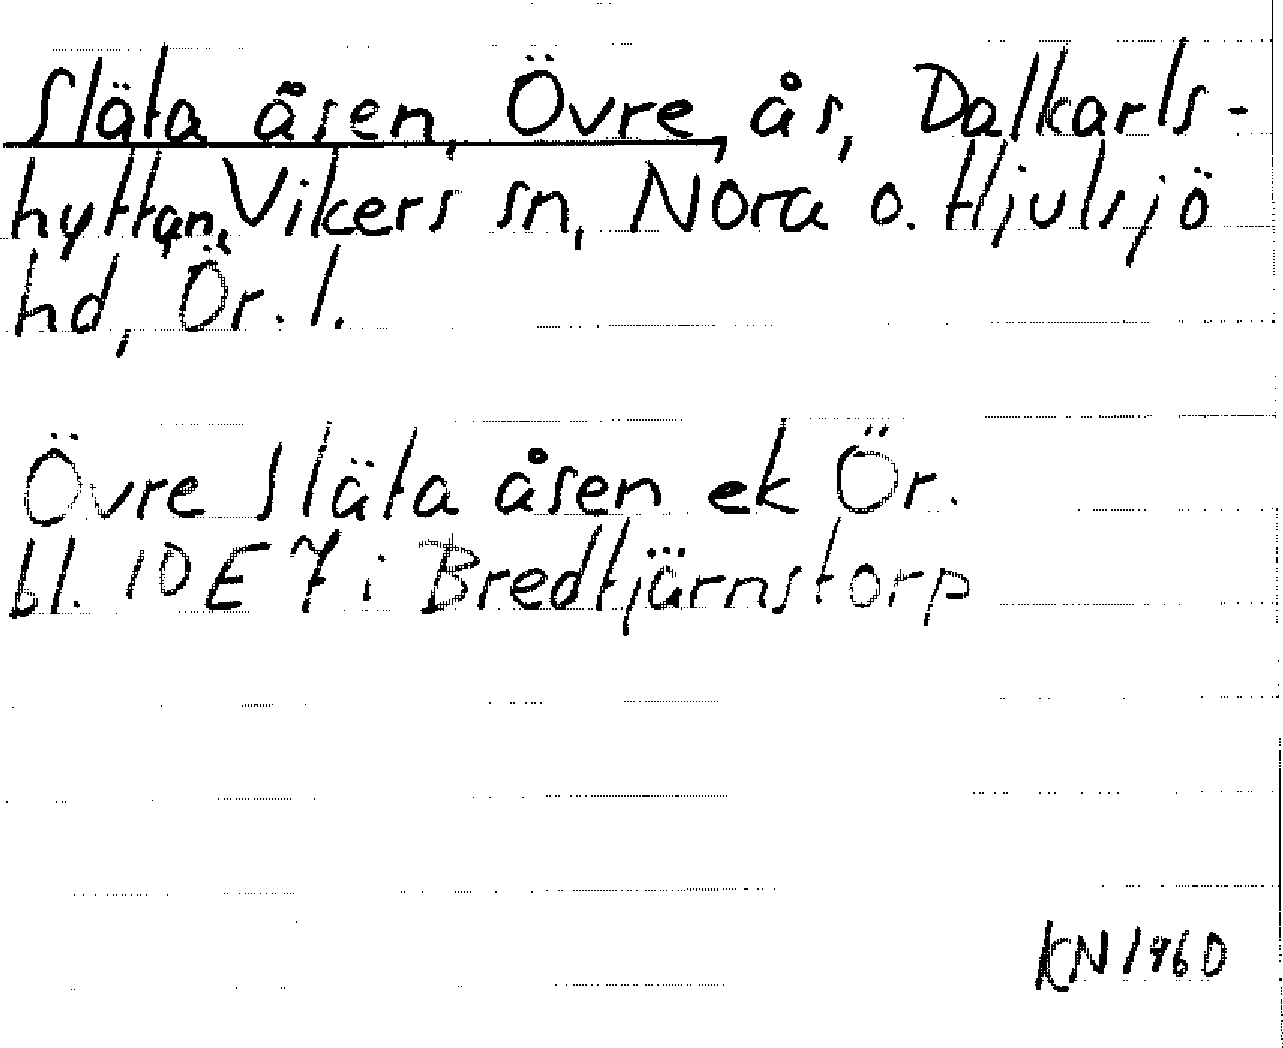 Släta åsen, Övre, ås, Dalkarls-
hyttan, Vikers sn, Nora o. Hjulsjö
hd, Ör. l.
Övre Släta åsen ek Ör.
bl. 10 E 7 i Bredtjärnstorp
KN 1960